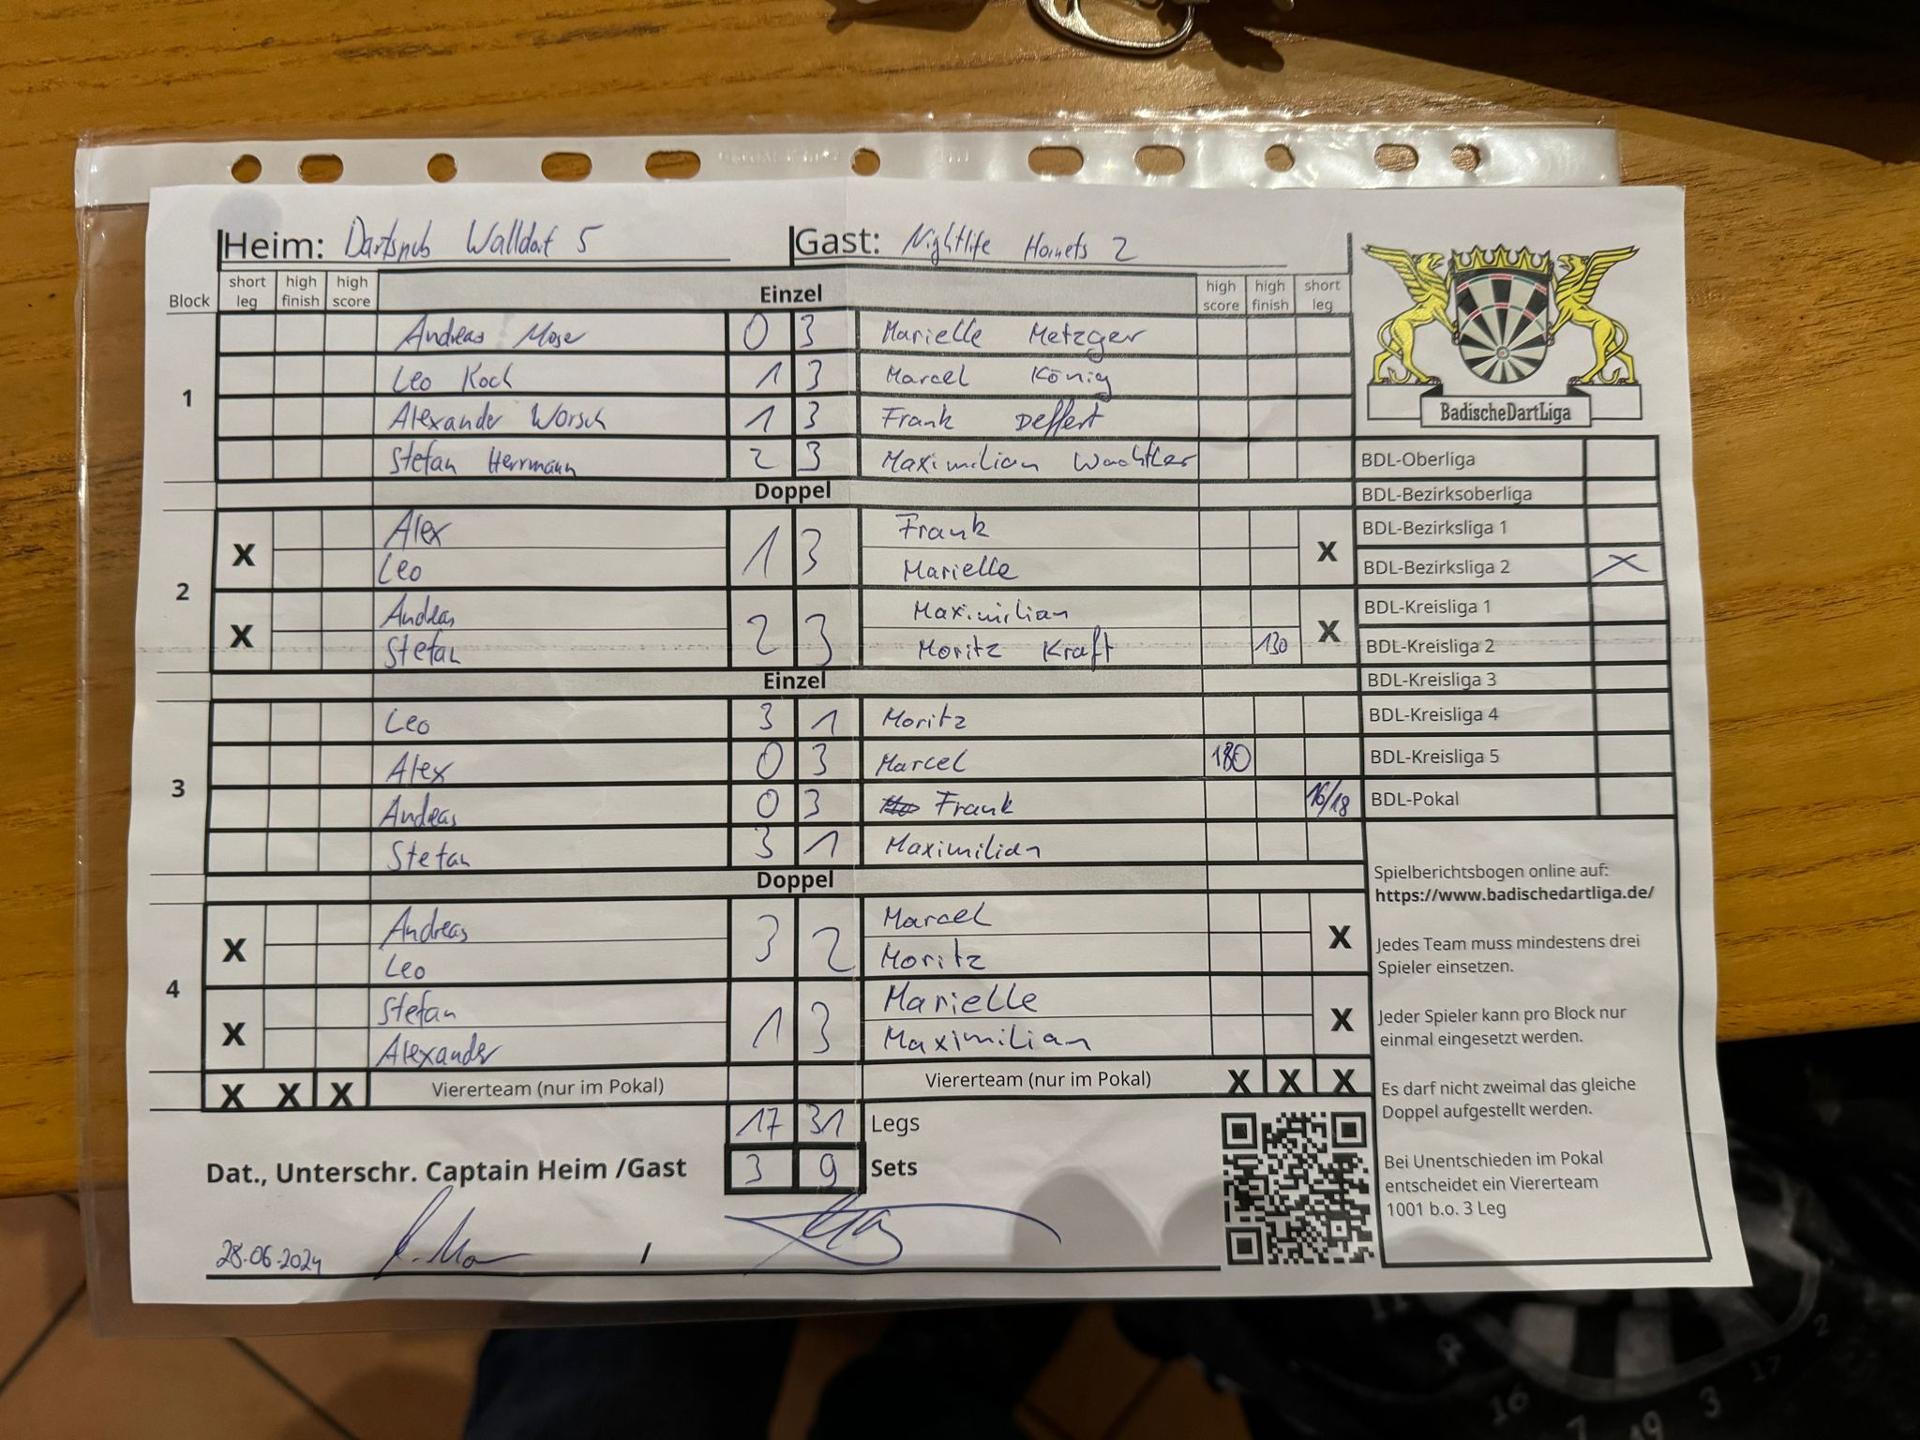 Heim: Dartsnub Walldorf 5 Gast: Nightlife Hornets 2
Block short leg high finish high score Einzel high score high finish short leg
1
Andreas Mose 0 3 Marielle Metzger
Leo Koch 1 3 Marcel König
Alexander Worsch 1 3 Frank Deffert
Stefan Herrmann 2 3 Maximilian Wachtler
Doppel
2
X Alex 1 3 Frank X
Leo Marielle
X Andreas 2 3 Maximilian X
Stefan Moritz Kraft 130
Einzel
3
Leo 3 1 Moritz
Alex 0 3 Marcel 180
Andreas 0 3 Frank 16/18
Stefan 3 1 Maximilian
Doppel
4
X Andreas 3 2 Marcel X
Leo Moritz
X Stefan 1 3 Marielle X
Alexander Maximilian
X X X Viererteam (nur im Pokal) Viererteam (nur im Pokal) X X X
17 31 Legs
Dat., Unterschr. Captain Heim /Gast 3 9 Sets
28.06.2024 /
BadischeDartLiga
BDL-Oberliga
BDL-Bezirksoberliga
BDL-Bezirksliga 1
BDL-Bezirksliga 2 X
BDL-Kreisliga 1
BDL-Kreisliga 2
BDL-Kreisliga 3
BDL-Kreisliga 4
BDL-Kreisliga 5
BDL-Pokal
Spielberichtsbogen online auf:
https://www.badischedartliga.de/
Jedes Team muss mindestens drei
Spieler einsetzen.
Jeder Spieler kann pro Block nur
einmal eingesetzt werden.
Es darf nicht zweimal das gleiche
Doppel aufgestellt werden.
Bei Unentschieden im Pokal
entscheidet ein Viererteam
1001 b.o. 3 Leg
11
9
16
7
19
3
17
2